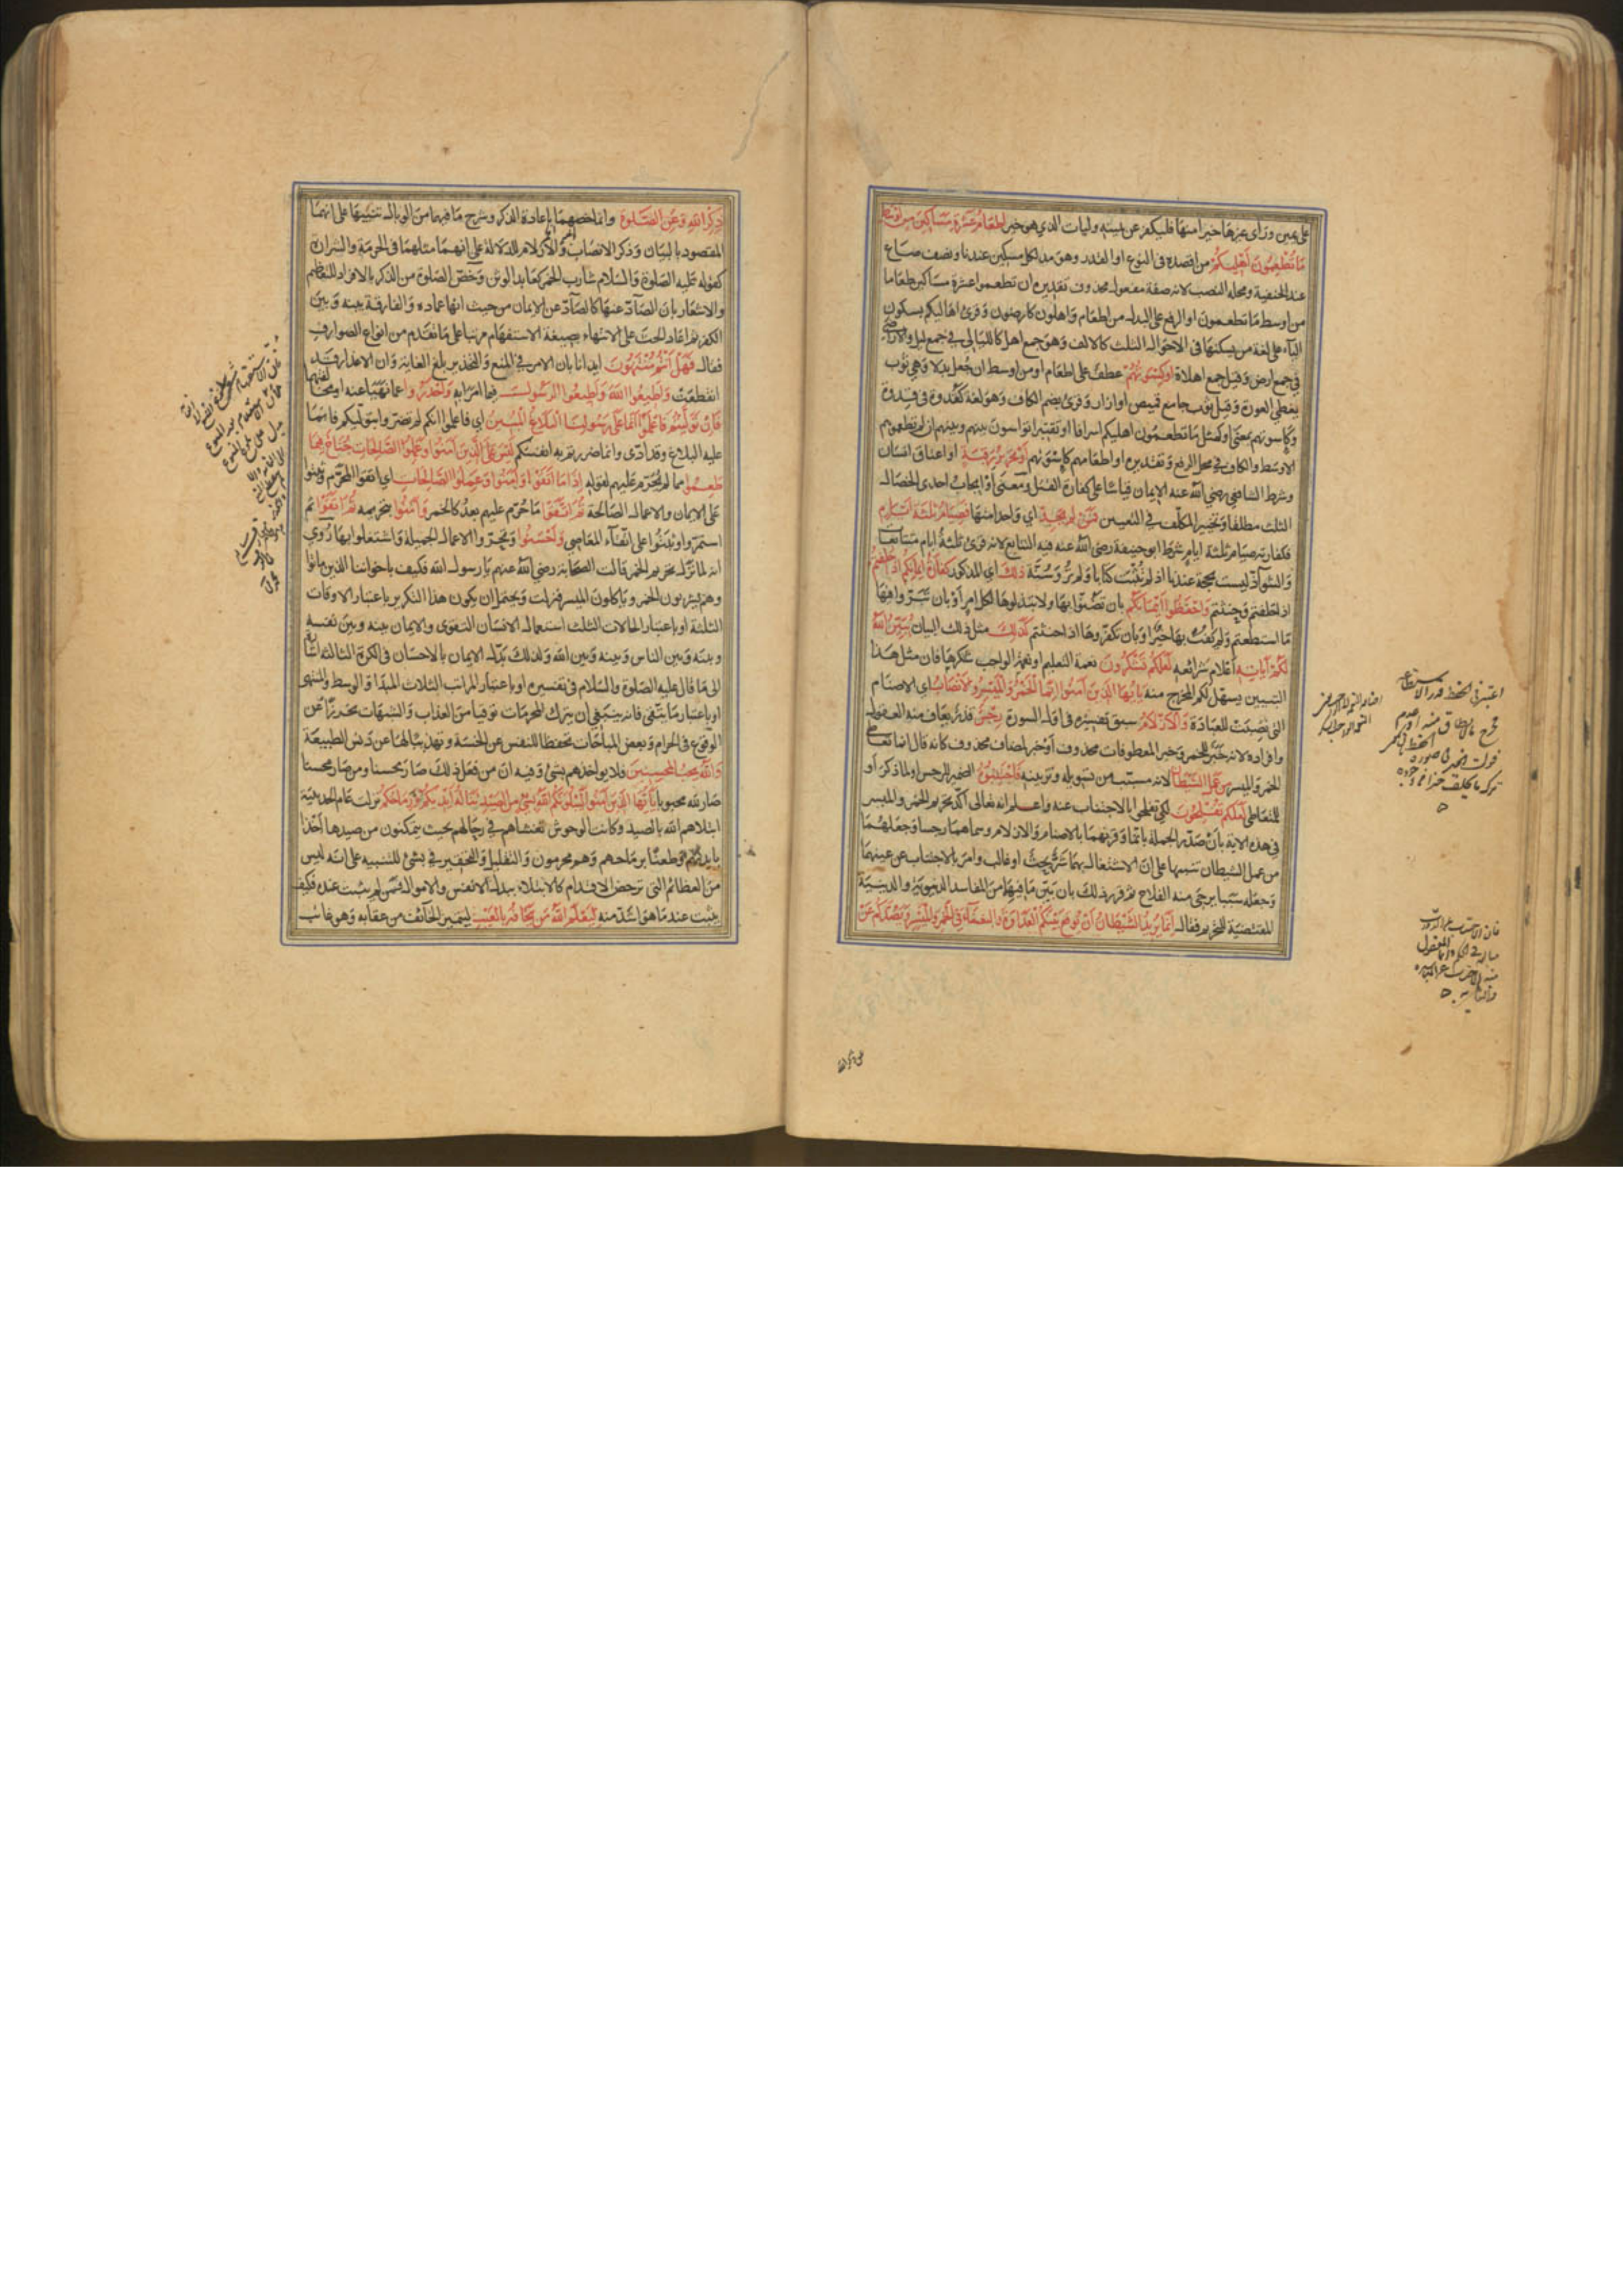 على يمين وراى غيرها خيرا منها فليكفر عن يمينه وليات الذي هو خير اطعام عشرة مساكين من اوسط
ما تطعمون اهليكم من اقصده في النوع او القدر وهو مد لكل مسكين عندنا ونصف صاع
عند الحنفية ومحله النصب لانه صفة مفعول محذوف تقديره ان تطعموا عشرة مساكين طعاما
من اوسط ما تطعمون او الرفع على البدل من اطعام واهلون كارضون وقرئ اهاليكم بسكون
الياء على لغة من يسكنها في الاحوال الثلث كالالف وهو جمع اهل كالليالي في جمع ليل والاراضي
في جمع ارض وقيل جمع اهلاة او كسوتهم عطف على اطعام او من اوسط ان جعل بدلا وهي ثوب
يغطي العورة وقيل ثوب جامع قميص او ازار وقرئ بضم الكاف وهو لغة كقدوة في قدوة
وكاسوتهم بمعنى او كمثل ما تطعمون اهليكم اسرافا او تقتيرا تواسون بينهم وبينهم ان لم تطعموهم
الاوسط والكاف في محل الرفع وتقديره او اطعامهم كاسوتهم او تحرير رقبة او اعتاق انسان
وشرط الشافعي رضي الله عنه الايمان قياسا على كفارة القتل ومعنى او ايجاب احدى الخصال
الثلث مطلقا وتخيير المكلف في التعيين فمن لم يجد اي واحدا منها فصيام ثلثة ايام
فكفارته صيام ثلثة ايام شرط ابو حنيفة رضي الله عنه فيه التتابع لانه قرئ ثلثة ايام متتابعات
والشواذ ليست بحجة عندنا اذ لم تثبت كتابا ولم ترو سنة ذلك اي المذكور كفارة ايمانكم اذا حلفتم
اذا حلفتم وحنثتم واحفظوا ايمانكم بان تضنوا بها ولا تبذلوها لكل امر او بان تبروا فيها
ما استطعتم ولم يفت بها خير او بان تكفروها اذا حنثتم كذلك مثل ذلك البيان يبين الله
لكم آياته اعلام شرائعه لعلكم تشكرون نعمة التعليم او نعمه الواجب شكرها فان مثل هذا
التبيين يسهل لكم المخرج منه يا ايها الذين آمنوا انما الخمر والميسر والانصاب اي الاصنام
التي نصبت للعبادة والازلام سبق تفسيره في اول السورة رجس قذر يعاف منه العقول
وافراده لانه خبر للخمر وخبر المعطوفات محذوف او خبر لمضاف محذوف كانه قال انما تعاطي
الخمر والميسر من عمل الشيطان لانه مسبب من تسويله وتزيينه فاجتنبوه الضمير للرجس او لما ذكر او
للتعاطي لعلكم تفلحون لكي تفلحوا بالاجتناب عنه واعلم انه تعالى اكد تحريم الخمر والميسر
في هذه الاية بان صدر الجملة بانما وقرنهما بالاصنام والازلام وسماهما رجسا وجعلهما
من عمل الشيطان تنبيها على ان الاشتغال بهما شر بحت او غالب وامر بالاجتناب عن عينهما
وجعله سببا يرجى منه الفلاح ثم قرر ذلك بان بين ما فيهما من المفاسد الدنيوية والدينية
المقتضية للتحريم فقال انما يريد الشيطان ان يوقع بينكم العداوة والبغضاء في الخمر والميسر ويصدكم عن
ذكر الله وعن الصلوة وانما خصهما باعادة الذكر وشرح ما فيهما من الوبال تنبيها على انهما
المقصود بالبيان وذكر الانصاب والازلام للدلالة على انهما مثلهما في الحرمة والشرارة
كقوله عليه الصلوة والسلام شارب الخمر كعابد الوثن وخص الصلوة من الذكر بالافراد للتعظيم
والاشعار بان الصاد عنها كالصاد عن الايمان من حيث انها عماده والفارقة بينه وبين
الكفر ثم اعاد الحث على الانتهاء بصيغة الاستفهام مرتبا على ما تقدم من انواع الصوارف
فقال فهل انتم منتهون ايذانا بان الامر في المنع والتحذير بلغ الغاية وان الاعذار قد
انقطعت واطيعوا الله واطيعوا الرسول فيما امرا به واحذروا عما نهيا عنه او مخالفتهما
فان توليتم فاعلموا انما على رسولنا البلاغ المبين اي فاعلموا انكم لم تضروا بتوليكم فانما
عليه البلاغ وقد ادى وانما ضررتم به انفسكم ليس على الذين آمنوا وعملوا الصالحات جناح فيما
طعموا مما لم يحرم عليهم لقوله اذا ما اتقوا وآمنوا وعملوا الصالحات اي اتقوا المحرم وثبتوا
على الايمان والاعمال الصالحة ثم اتقوا ما حرم عليهم بعد كالخمر وآمنوا بتحريمه ثم اتقوا ثم
استمروا وثبتوا على اتقاء المعاصي واحسنوا وتحروا الاعمال الجميلة واشتغلوا بها روي
انه لما نزل تحريم الخمر قالت الصحابة رضي الله عنهم يا رسول الله فكيف باخواننا الذين ماتوا
وهم يشربون الخمر وياكلون الميسر فنزلت ويحتمل ان يكون هذا التكرير باعتبار الاوقات
الثلثة او باعتبار الحالات الثلث استعمال الانسان التقوى والايمان بينه وبين نفسه
وبينه وبين الناس وبينه وبين الله ولذلك بدل الايمان بالاحسان في الكرة الثالثة اشارة
الى ما قال عليه الصلوة والسلام في تفسيره او باعتبار المراتب الثلاث المبدا والوسط والمنتهى
او باعتبار ما يتقى فانه ينبغي ان يترك المحرمات توقيا من العذاب والشبهات تحرزا عن
الوقوع في الحرام وبعض المباحات تحفظا للنفس عن الخسة وتهذيبا لها عن دنس الطبيعة
والله يحب المحسنين فلا يواخذهم بشئ وفيه ان من فعل ذلك صار محسنا ومن صار محسنا
صار لله محبوبا يا ايها الذين آمنوا ليبلونكم الله بشئ من الصيد تناله ايديكم ورماحكم نزلت عام الحديبية
ابتلاهم الله بالصيد وكانت الوحوش تغشاهم في رحالهم بحيث يتمكنون من صيدها اخذا
بايديهم وطعنا برماحهم وهم محرمون والتقليل والتحقير في بشئ للتنبيه على انه ليس
من العظائم التي تدحض الاقدام كالابتلاء ببذل الانفس والاموال فمن لم يثبت عنده فكيف
يثبت عند ما هو اشد منه ليعلم الله من يخافه بالغيب ليتميز الخائف من عقابه وهو غائب